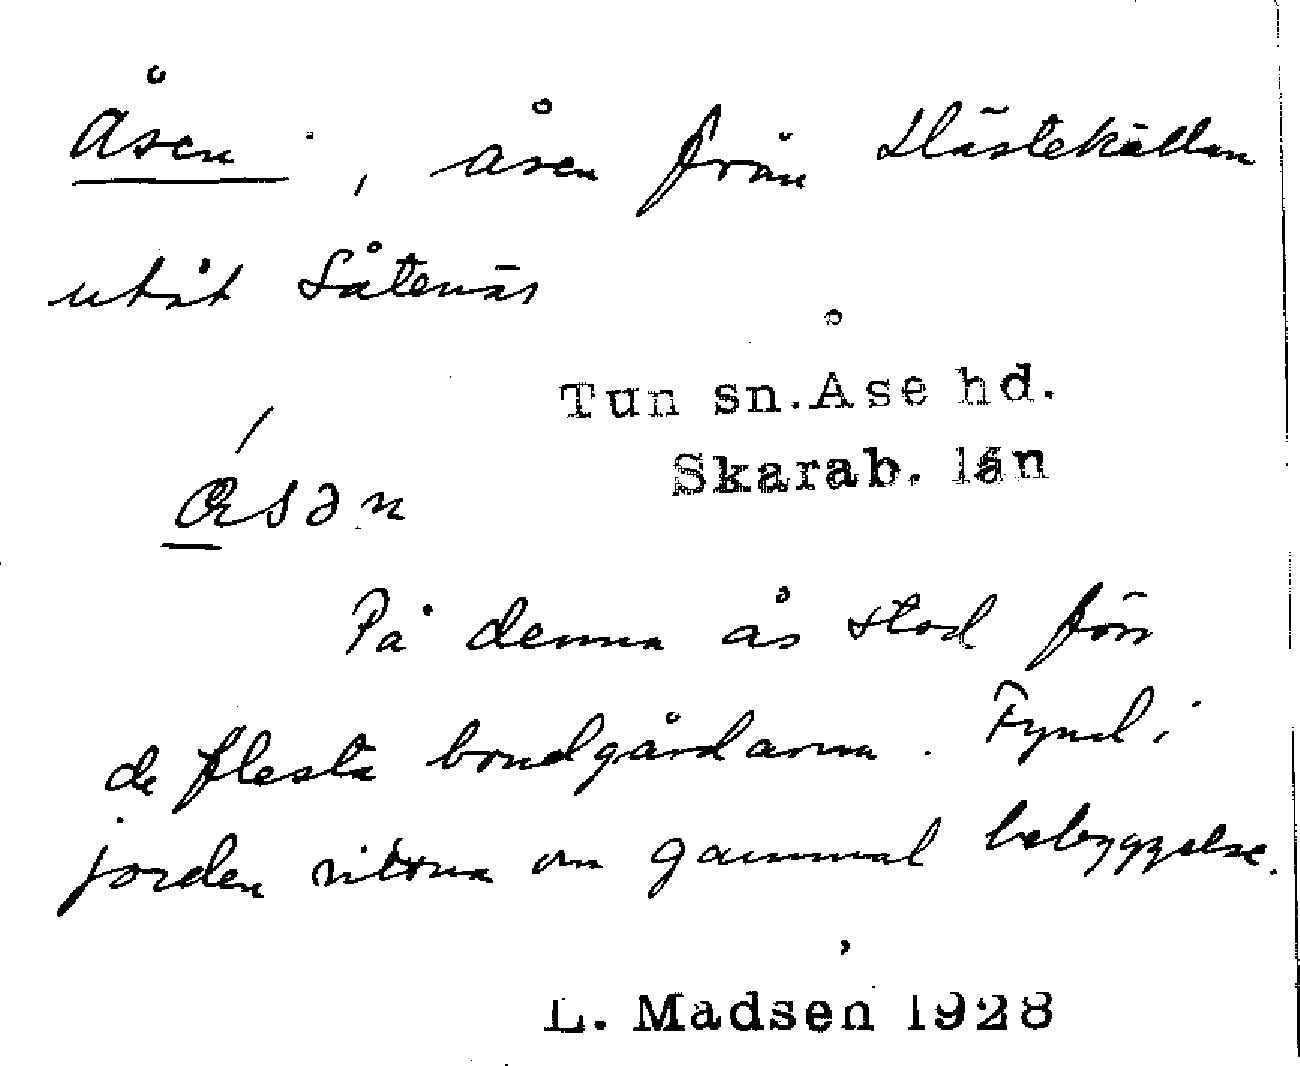 Åsen, åsen från Hästekällan
utåt Såtenäs
Tun sn. Åse hd.
Skarab. län
På denna ås stod förr
de flesta bondgårdarna. Fynd i
jorden vittna om gammal bebyggelse.
L. Madsen 1928